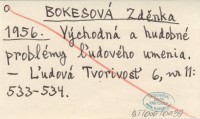 BOKESOVÁ Zdenka
1956. Východná a hudobné
problémy ľudového umenia.
– Ľudová Tvorivosť 6, nr 11:
533-534.